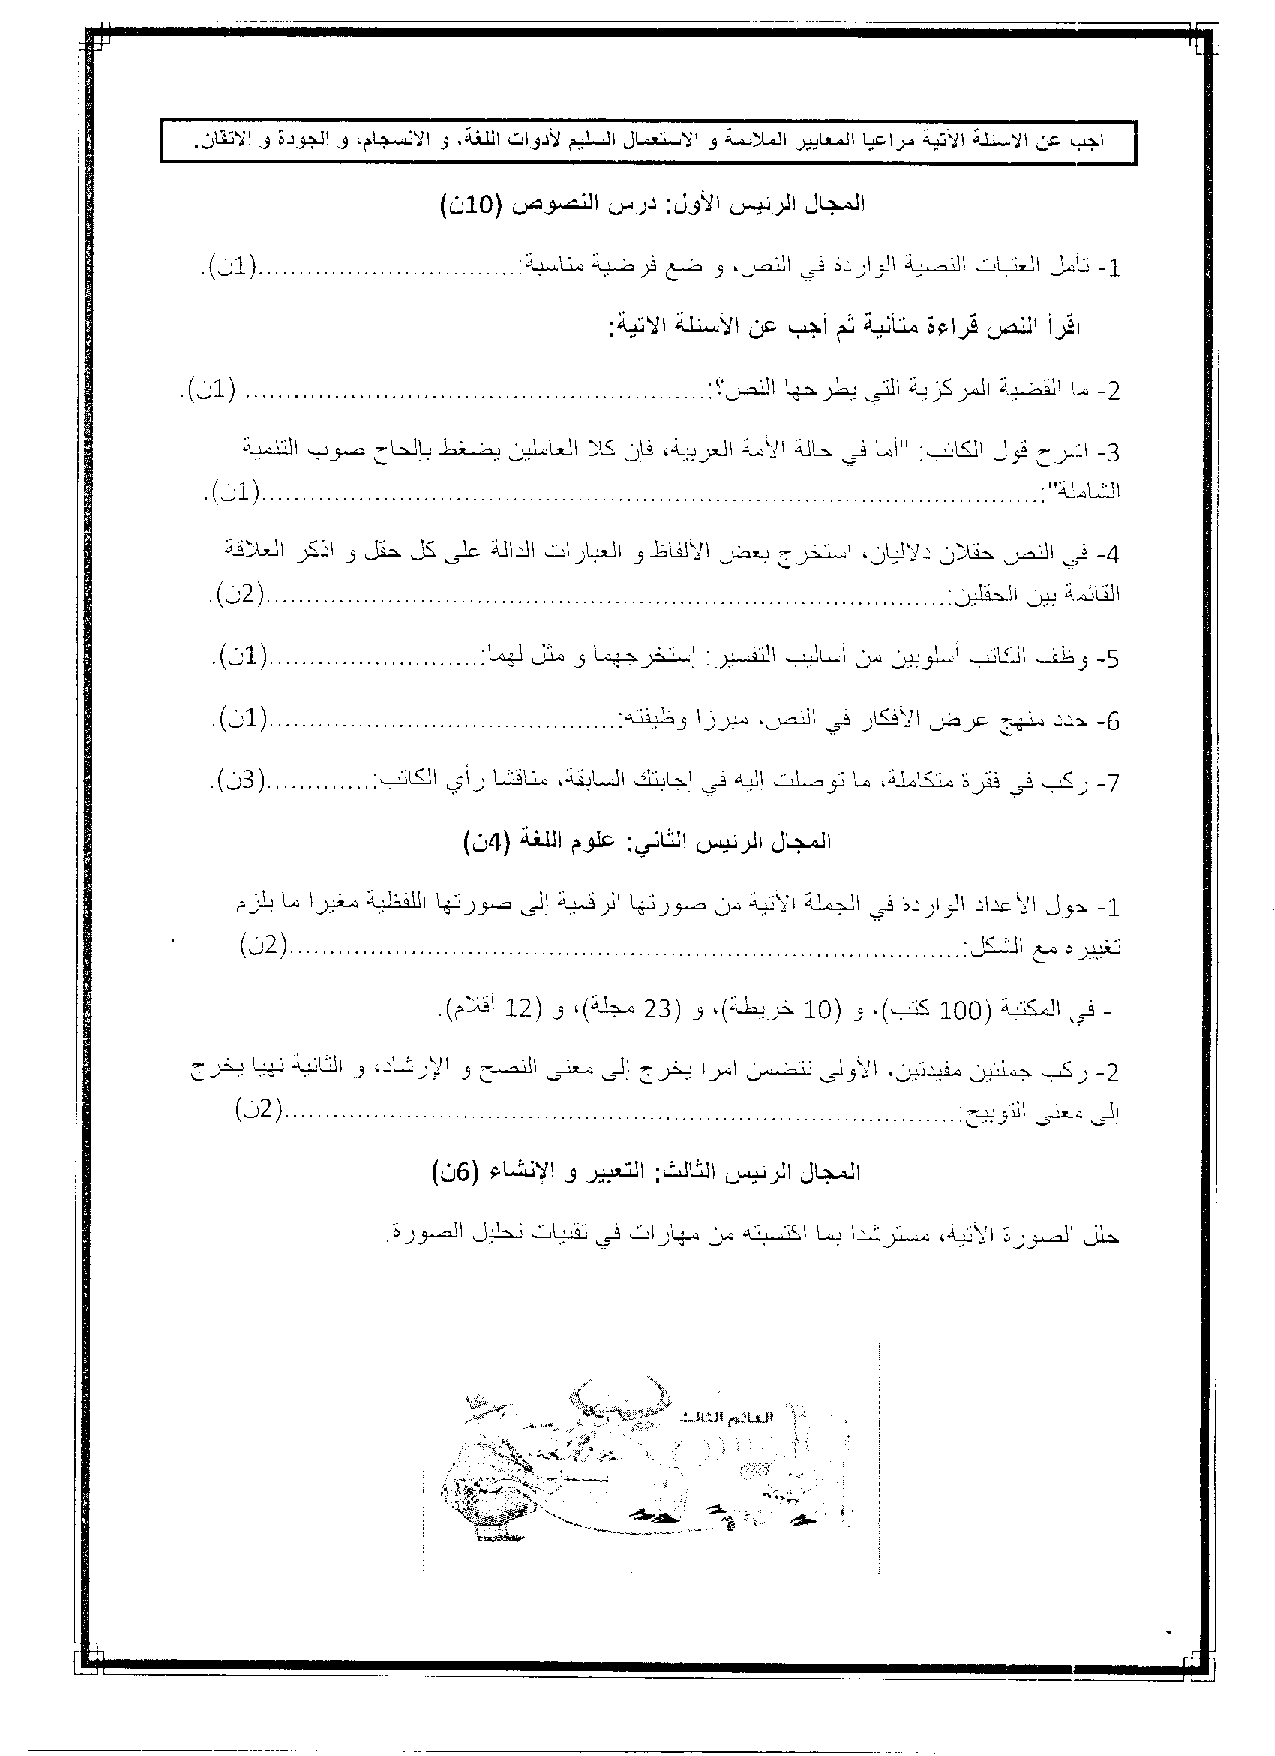 أجب عن الأسئلة الآتية مراعيا المعايير الملائمة و الاستعمال السليم لأدوات اللغة، و الانسجام، و الجودة و الاتقان.
المجال الرئيس الأول: درس النصوص (10ن)
1- تأمل العتبات النصية الواردة في النص، و ضع فرضية مناسبة:................................(1ن).
اقرأ النص قراءة متأنية ثم أجب عن الأسئلة الاتية:
2- ما القضية المركزية التي يطرحها النص؟:.......................................................... (1ن).
3- اشرح قول الكاتب: "أما في حالة الأمة العربية، فإن كلا العاملين يضغط بالحاح صوب التنمية
الشاملة":.................................................................................................(1ن).
4- في النص حقلان دلاليان، استخرج بعض الألفاظ و العبارات الدالة على كل حقل و اذكر العلاقة
القائمة بين الحقلين:.....................................................................................(2ن).
5- وظف الكاتب أسلوبين من أساليب التفسير: إستخرجهما و مثل لهما:..........................(1ن).
6- حدد منهج عرض الأفكار في النص، مبرزا وظيفته:...........................................(1ن).
7- ركب في فقرة متكاملة، ما توصلت إليه في إجابتك السابقة، مناقشا رأي الكاتب:.............(3ن).
المجال الرئيس الثاني: علوم اللغة (4ن)
1- حول الأعداد الواردة في الجملة الآتية من صورتها الرقمية إلى صورتها اللفظية مغيرا ما يلزم
تغييره مع الشكل:....................................................................................(2ن)
- في المكتبة (100 كتب)، و (10 خريطة)، و (23 مجلة)، و (12 أقلام).
2- ركب جملتين مفيدتين، الأولى تتضمن امرا يخرج إلى معنى النصح و الإرشاد، و الثانية نهيا يخرج
إلى معنى التوبيخ:....................................................................................(2ن)
المجال الرئيس الثالث: التعبير و الإنشاء (6ن)
حلل الصورة الآتية، مسترشدا بما اكتسبته من مهارات في تقنيات تحليل الصورة.
العالم الثالث